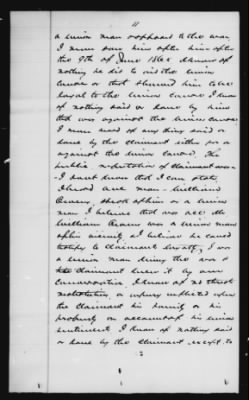 11
a union man & opposed to the war
I never saw him after him after
the 9th of June 1865 I know of
nothing he did to aid the union
cause or that showed him to be
loyal to the union cause I know
of nothing said or done by him
that was against the union cause
I never heard of any thing said or
done by the claimant either for or
against the union cause. The
public reputation of claimant was
I don't know that I can state
I heard one man William
speak of him as a union
man I believe that was all Mr
William was a union man
after I believe he could
testify to claimants loyalty. I was
a union man during the war &
the claimant knew it by our
conversation I know of no threat
molestation or injury inflicted upon
the claimant his family or his
property on account of his union
sentiment I know of nothing said
or done by the claimant except to